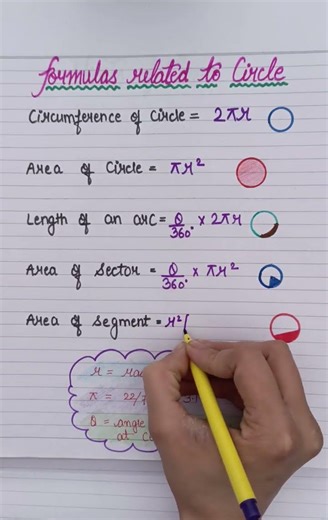 Formulas related to Circle
Circumference of Circle = 2πr
Area of Circle = πr²
Length of an arc = θ/360° × 2πr
Area of Sector = θ/360° × πr²
Area of Segment = r²(
r =
π = 22/7
θ = angle
at